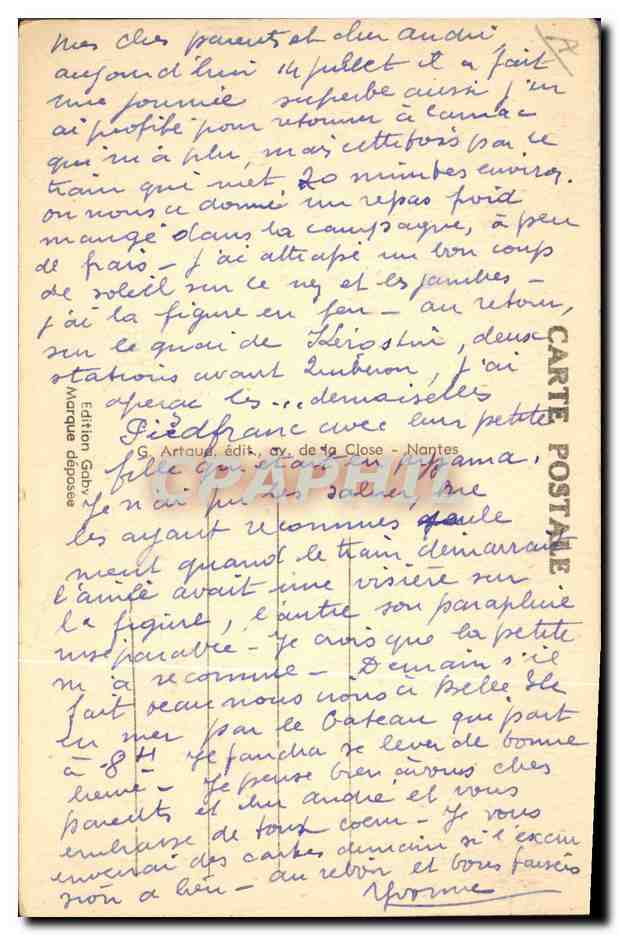 mes chers parents et cher andré,
aujourd'hui 14 juillet il a fait
une journée superbe aussi j'en
ai profité pour retourner à Carnac
qui m'a plu, mais cette fois par le
train qui met 20 minutes environ.
on nous a donné un repas froid
mangé dans la campagne, à peu
de frais - j'ai attrapé un bon coup
de soleil sur le nez et les jambes -
j'ai la figure en feu - au retour,
sur le quai de Kérostin, deux
stations avant Quiberon, j'ai
aperçu les ... demoiselles
Piedfranc avec leur petite
fille qui était en pyjama.
Je n'ai pu les saluer, ne
les ayant reconnues seule
ment quand le train démarrait
l'aînée avait une visière sur
la figure, l'autre son parapluie
inséparable - Je crois que la petite
m'a reconnue - Demain s'il
fait beau nous irons à Belle Ile
en mer par le bateau qui part
à 8H Il faudra se lever de bonne
heure - Je pense bien à vous chers
parents et cher andré et vous
embrasse de tout coeur - Je vous
enverrai des cartes demain si l'excur
sion a lieu - au revoir et bons baisers
Yvonne
CARTE POSTALE
Edition Gaby
Marque déposée
G. Artaud, édit., av. de la Close - Nantes
CPAPHIL